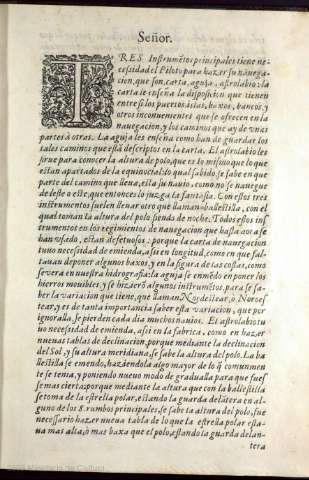 Señor.
TRES Instrumẽtos principales tiene ne-
cessidad el Piloto para hazer su nauega-
cion, que son, carta, aguja, astrolabio: la
carta le enseña la disposiciõ que tienen
entre si los puertos, islas, baxos, bancos, y
otros inconuenientes que se ofrecen en la
nauegacion, y los caminos que ay de vnas
partes à otras. La aguja les enseña como han de guardar los
tales caminos que està descriptos en la carta. El astrolabio les
sirue para conocer la altura de polo, que es lo mismo que lo que
estan apartados de la equinocial: lo qual sabido, se sabe en que
parte del camino que lleua, està su nauio, como no se nauegue
de leste o este, que entonces lo juzga la fantasia. Con estos tres
instrumentos suelen llenar otro que llaman ballestilla, con el
qual toman la altura del polo siendo de noche. Todos estos ins-
trumentos en los regimientos de nauegacion que hasta aora se
han vsado, estan defetuosos: porque la carta de nauegacion
tuuo necessidad de emienda, assi en longitud, como en que fal-
tauan de poner algunos baxos, y en la figura de las costas, como
se vera en nuestra hidrografia: la aguja se enmẽdò en poner los
hierros mouibles, y se hizierõ algunos instrumẽtos para se sa-
ber la variacion que tiene, que llaman Nordestear, ò Noroes-
tear, y es de tanta importancia saber esta variacion, que por
ignoralla, se pierden cada dia muchos nauios. El astrolabio tu
uo necessidad de emienda, assi en la fabrica, como en hazer
nueuas tablas de declinacion, porque mediante la declinacion
del Sol, y su altura meridiana, se sabe la altura del polo. La ba
llestilla se emendo, haziẽdola algo mayor de lo q̃ comunmen
te se tenia, y poniendo nueuo modo de gradualla para que fues
se mas cierta: porque mediante la altura que con la ballestilla
se toma de la estrella polar, estando la guarda delãtera en al-
guno de los 8. rumbos principales, se sabe la altura del polo, fue
necessario hazer nueua tabla de lo que la estrella polar esta-
ua mas alta, ò mas baxa que el polo, estãdo la guarda delan-
tera